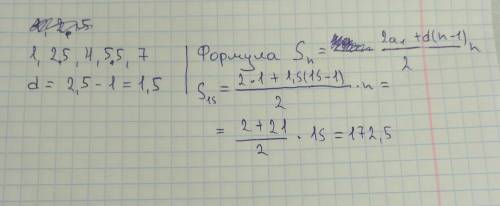 1, 2,5, 4, 5,5, 7
d = 2,5 - 1 = 1,5
Формула Sₙ = (2a₁ + d(n-1))/2 n
S₁₅ = (2·1 + 1,5(15-1))/2 · n =
= (2 + 21)/2 · 15 = 172,5